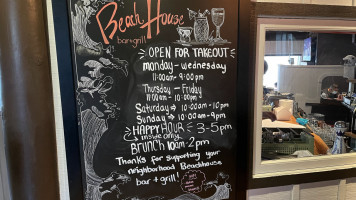 Beach House
bar + grill
OPEN FOR TAKEOUT
monday - wednesday
11:00am - 9:00pm
Thursday - Friday
11:00am - 10:00pm
Saturday → 10:00am - 10pm
Sunday → 10:00am - 9pm
HAPPY HOUR → 3-5pm
inside only
BRUNCH 10am - 2pm
Thanks for supporting your
neighborhood Beachhouse
bar + grill!